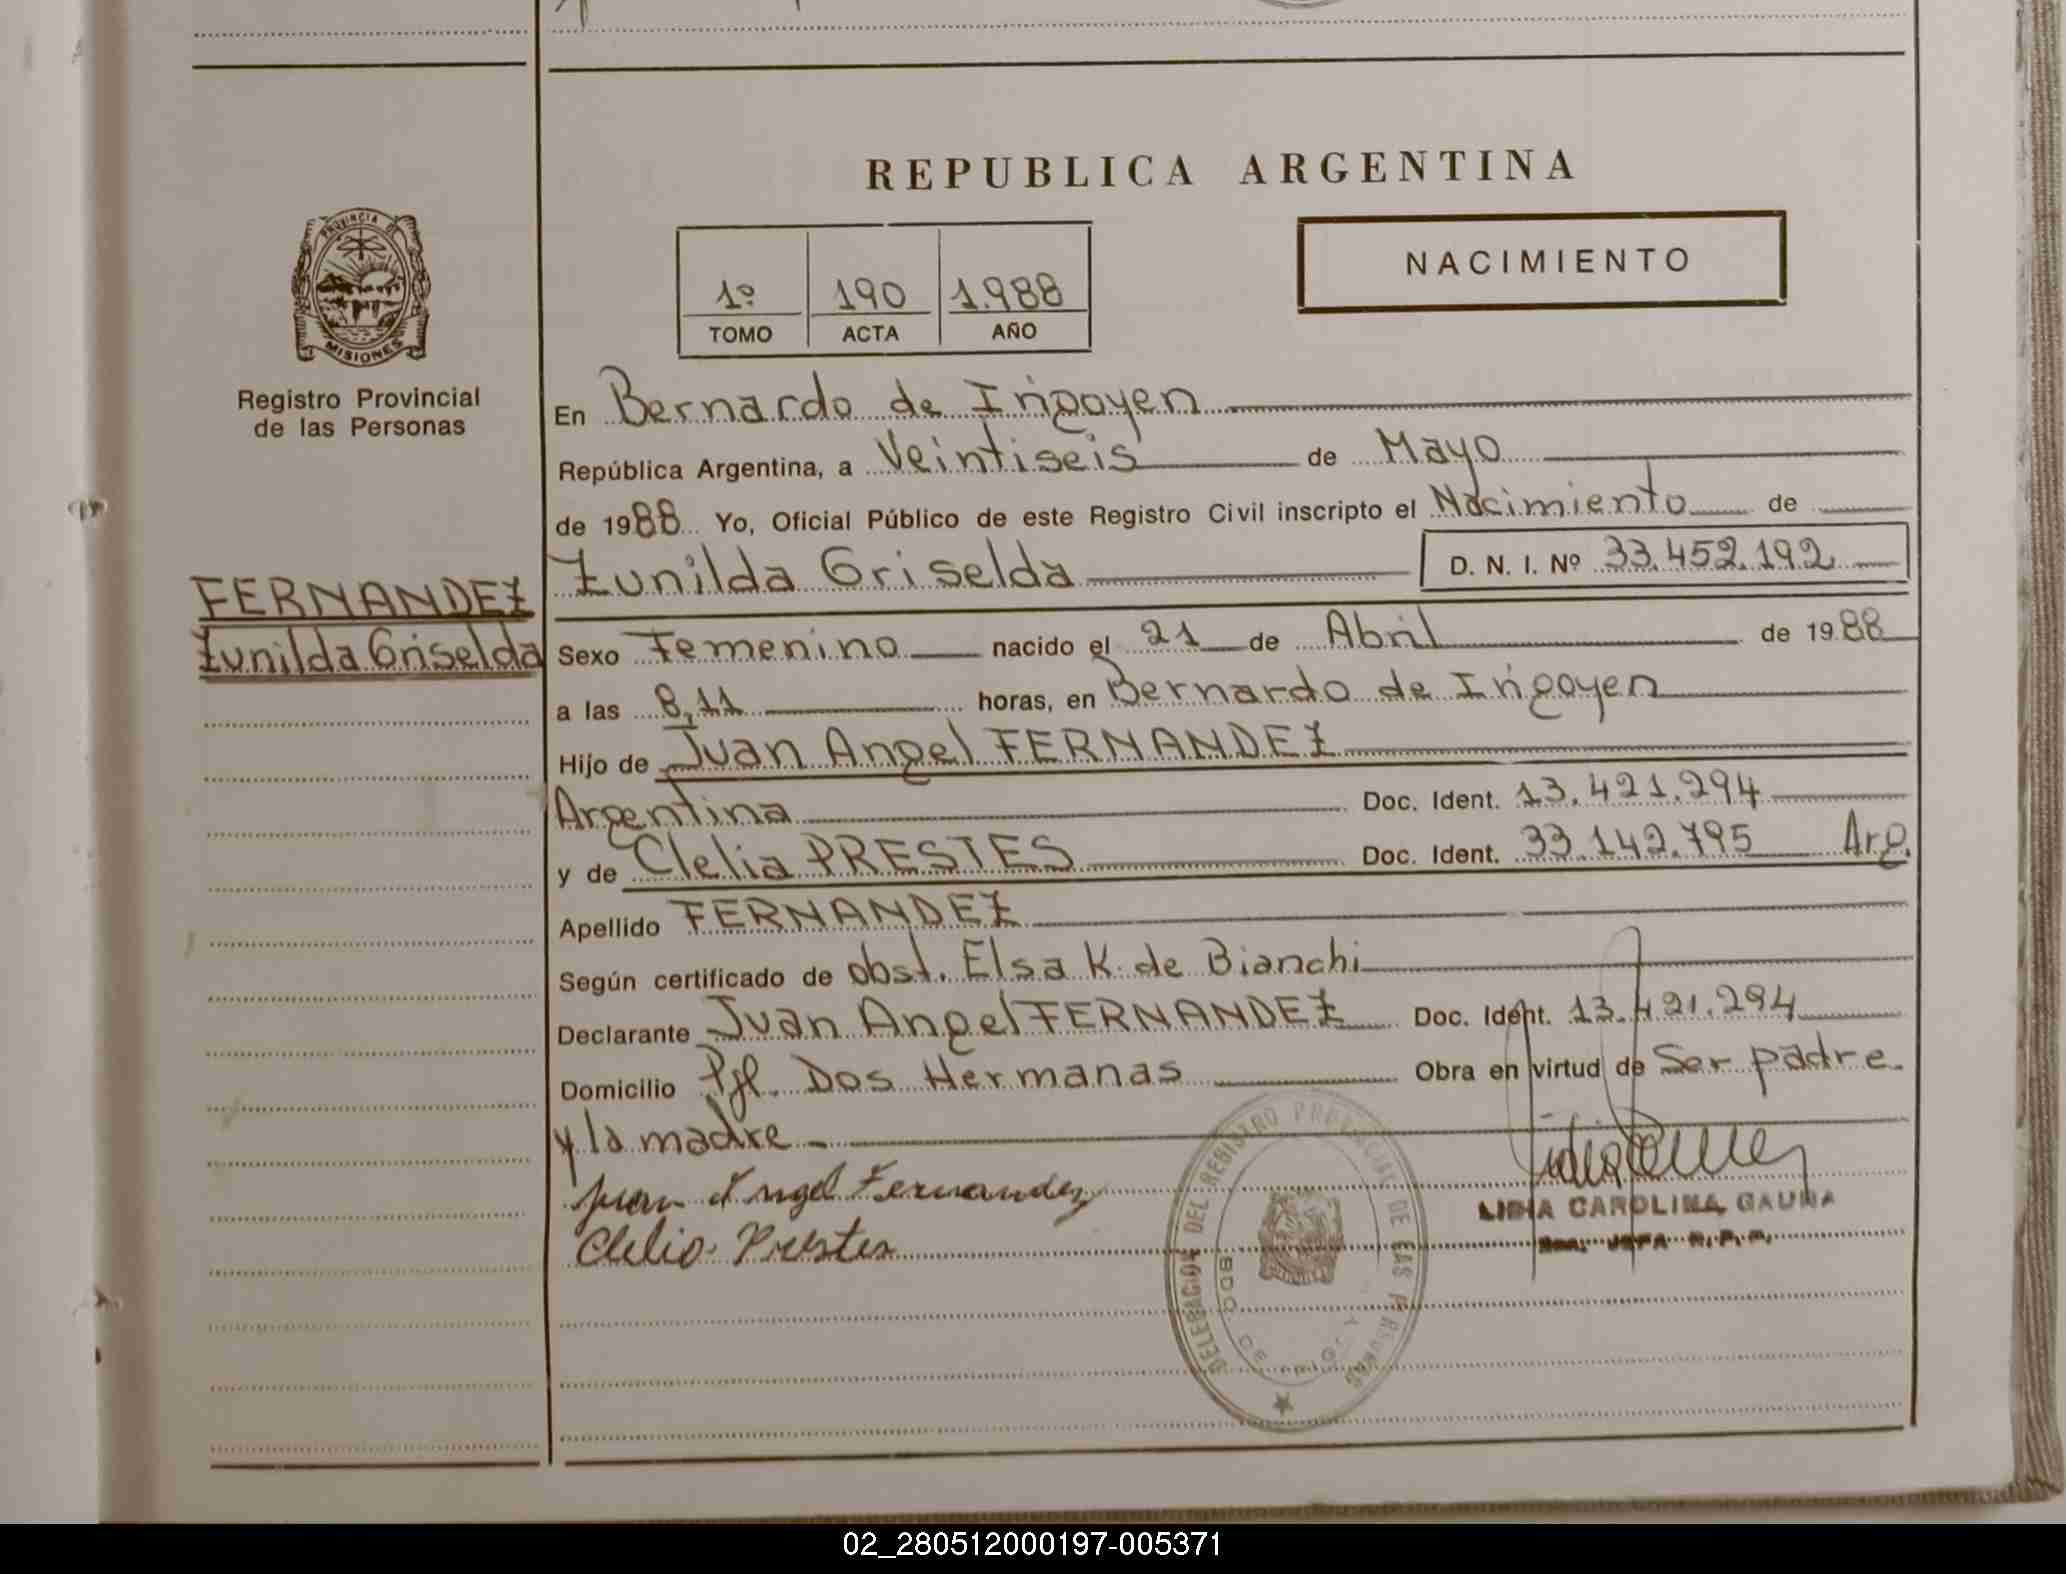 REPUBLICA ARGENTINA
NACIMIENTO
1º 190 1.988
TOMO ACTA AÑO
PROVINCIA DE
MISIONES
Registro Provincial
de las Personas
FERNANDEZ
Zunilda Griselda
En Bernardo de Irigoyen
República Argentina, a Veintiseis de Mayo
de 1988 Yo, Oficial Público de este Registro Civil inscripto el Nacimiento de
Zunilda Griselda D. N. I. Nº 33.452.192
Sexo Femenino nacido el 21 de Abril de 1988
a las 8,11 horas, en Bernardo de Irigoyen
Hijo de Juan Angel FERNANDEZ
Argentina Doc. Ident. 13.421.294
y de Clelia PRESTES Doc. Ident. 33.142.795 Arg.
Apellido FERNANDEZ
Según certificado de obst. Elsa K. de Bianchi
Declarante Juan Angel FERNANDEZ Doc. Ident. 13.421.294
Domicilio Pjl. Dos Hermanas Obra en virtud de Ser padre
y la madre
Juan Angel Fernandez
Clelia Prestes
LIDIA CAROLINA GAUNA
JEFA R. P. P.
DELEGACION DEL REGISTRO PROVINCIAL DE LAS PERSONAS
BDO. DE IRIGOYEN
02_280512000197-005371